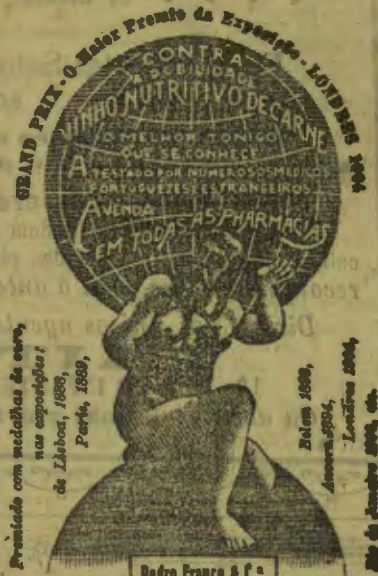 GRAND PRIX - O Maior Premio da Exposição - LONDRES 1904
CONTRA
A DEBILIDADE
VINHO NUTRITIVO DE CARNE
O MELHOR TONICO
QUE SE CONHECE
ATESTADO POR NUMEROSOS MEDICOS
PORTUGUEZES E ESTRANGEIROS
Á VENDA
EM TODAS AS PHARMACIAS
Premiado com medalhas de ouro,
nas exposições:
de Lisboa, 1888,
Paris, 1889,
Belem 1893,
Londres 1904,
Rio de Janeiro
Pedro Franco & C.ª